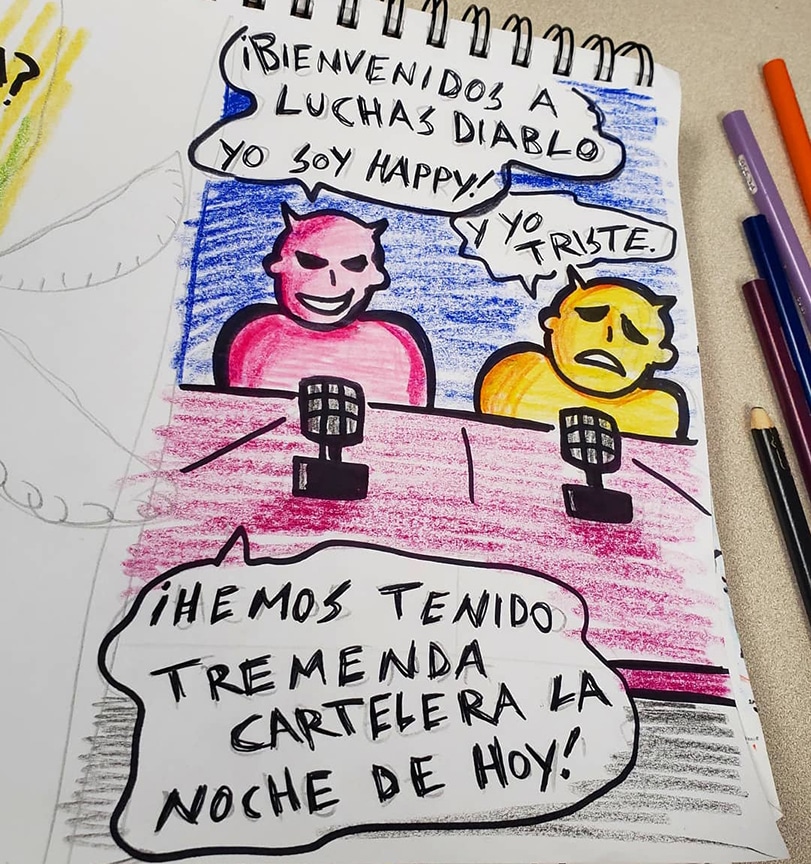 ¡BIENVENIDOS A
LUCHAS DIABLO
YO SOY HAPPY!
Y YO
TRISTE.
¡HEMOS TENIDO
TREMENDA
CARTELERA LA
NOCHE DE HOY!